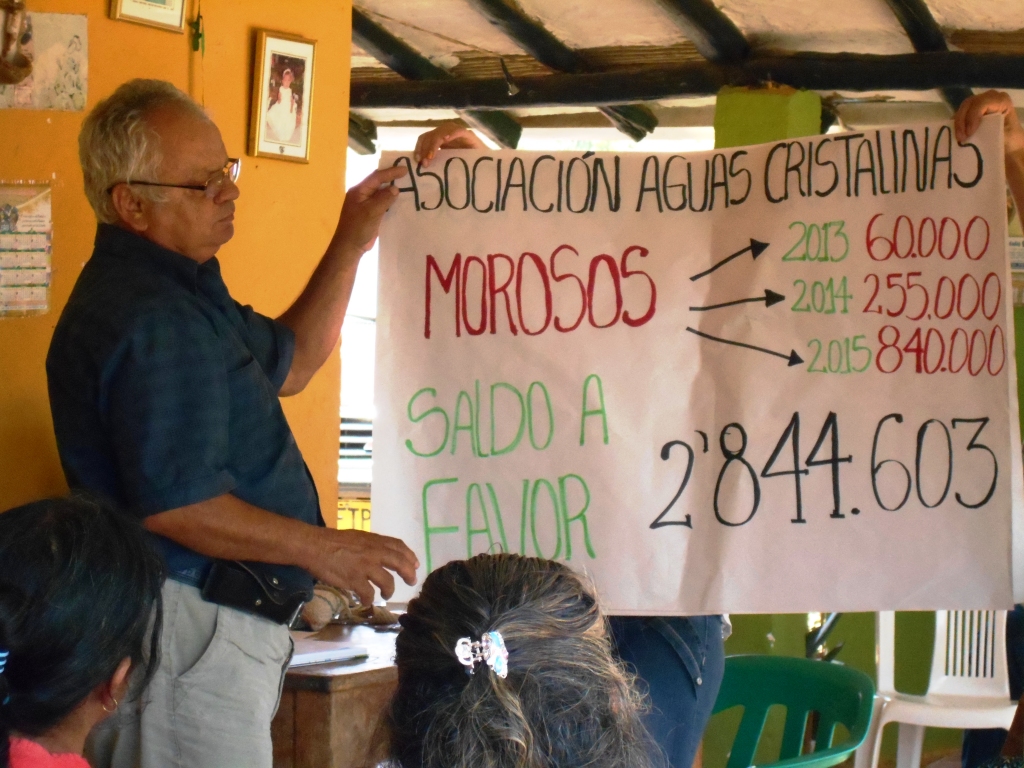 ASOCIACIÓN AGUAS CRISTALINAS
MOROSOS
2013 60.000
2014 255.000
2.015 840.000
SALDO A
FAVOR
2'844.603